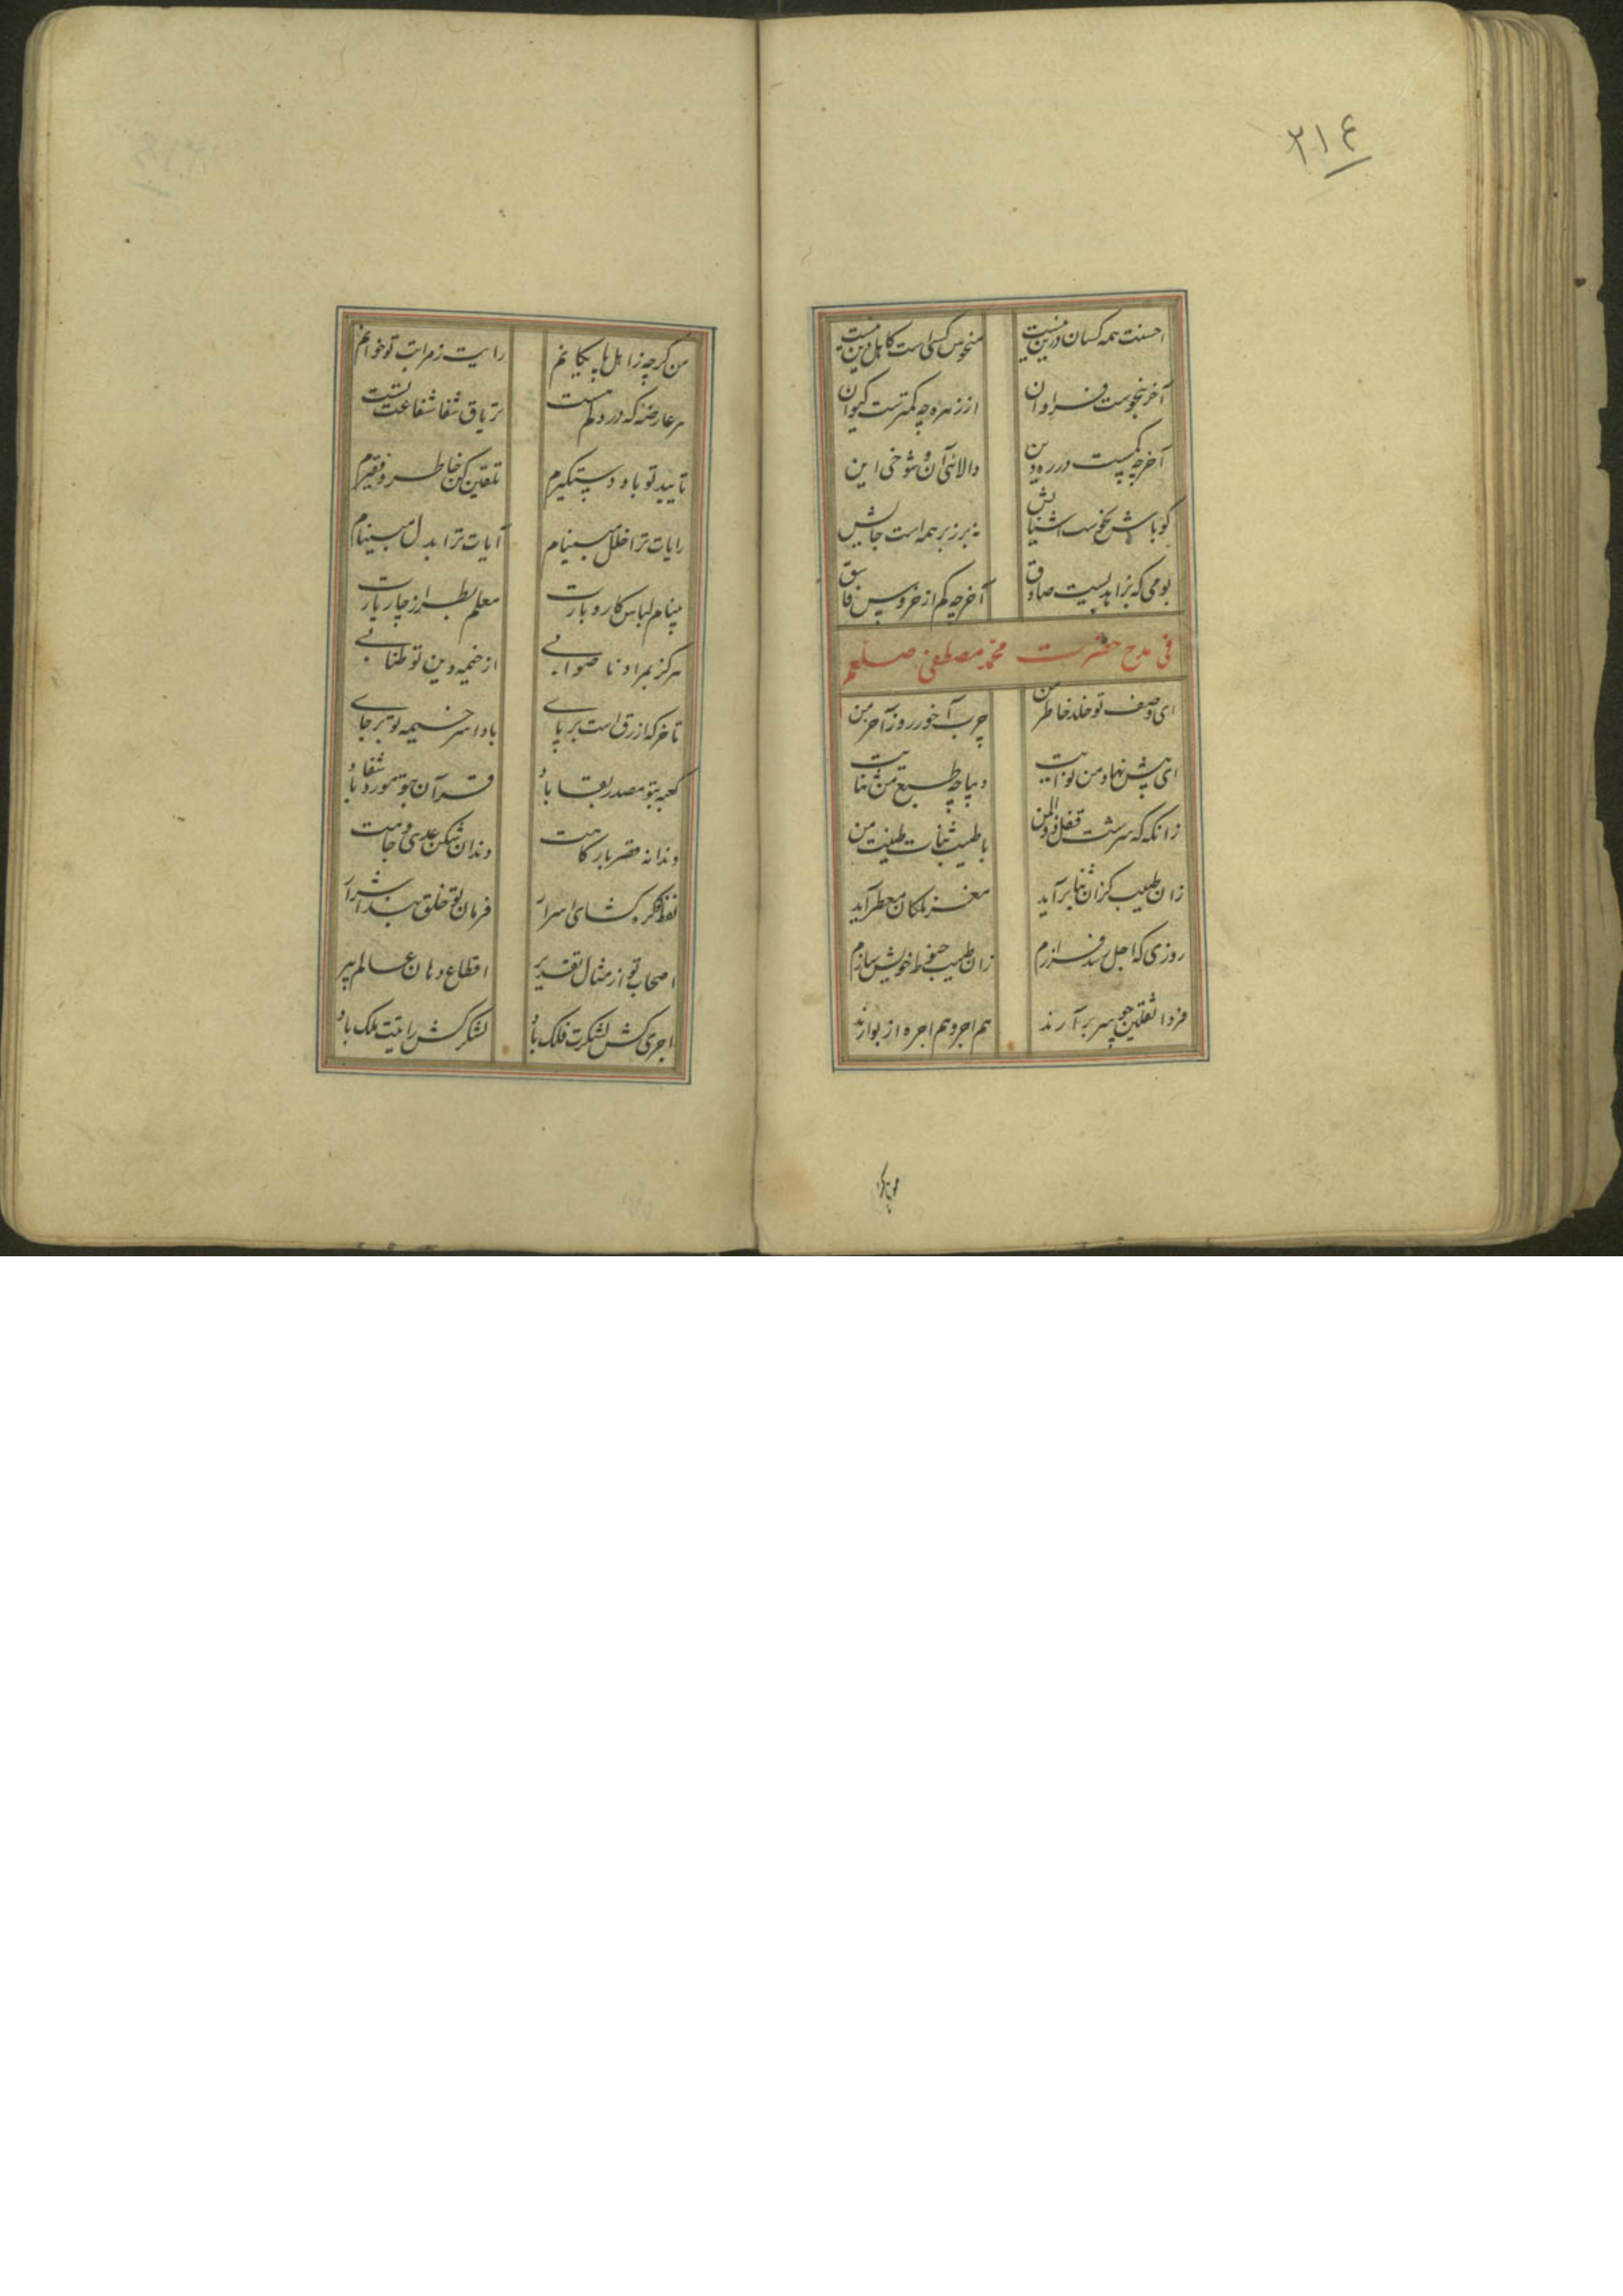 ٢١٤
احسنت همه کسان درین نیست منحوس کسی است کاهل دین نیست
آخر بنحوست فراوان از زهره چه کمترست کیوان
آخر چه کمست در ره دین والائی آن و شوخی این
کوباش نحوست اشنایش نه برزبر همه است جایش
بومی که بزاهدیست صادق آخر چه کم از خروس فاسق
فی مدح حضرت محمد مصطفی صلعم
ای وصف تو خلد خاطر من چرب آخور روز آخر من
ای پیش نهاد من نوایت دیباچه طبع من ثنایت
زانکه که سرشت قفل با طیب ثنات طینت من
زان طیب کزان ثنا برآید مغز ملکان معطر آید
روزی که اجل رسد فرازم زان طیب حنوط خویش سازم
فردا ثقلین چو سر برآرند هم اجر و هم اجره از تو دارند
من گرچه ز اهل رایت ز مراتب تو خوانم
هر عارضه که در دلم هست تریاق شفا شفاعتت هست
تایید تو باد دستگیرم تلقین کن خاطر و فقیرم
رایات ترا خلل مبینام آیات ترا بدل مبینام
بینام لباس کار و بارت معلم بطراز چار یارت
هرگز بمراد ناصوابی از خیمه دین تو طنابی
تا خرکه ازرق است برپای بادا سر خیمه تو برجای
کعبه بتو مصدر بقا باد قرآن بتو مورد شفا باد
دندانه قصر بارکاهت دندان شکن عدوی جاهت
لفظ کره کشای اسرار فرمان تو خلق بند اشرار
اصحاب تو از مثال تقدیر اقطاع دهان عالم پیر
اجری کش لشکرت فلک باد لشکرکش رایتت ملک باد